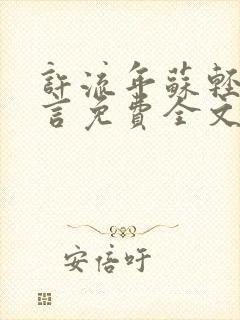 許流年蘇輕
言免費全文
安倍吁